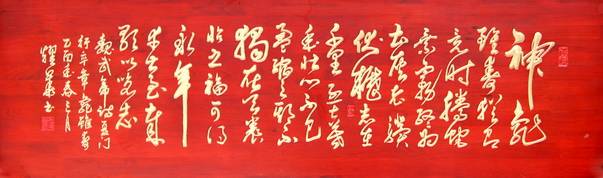 神龜
雖壽猶有
竟時騰蛇
乘霧終為
土灰老驥
伏櫪志在
千里烈士暮
年壯心不已
盈縮之期不
獨在天養
怡之福可得
永年
幸甚至哉
歌以詠志
魏武帝詩夏門
行卒章龜雖壽
乙酉年春三月
耀 書